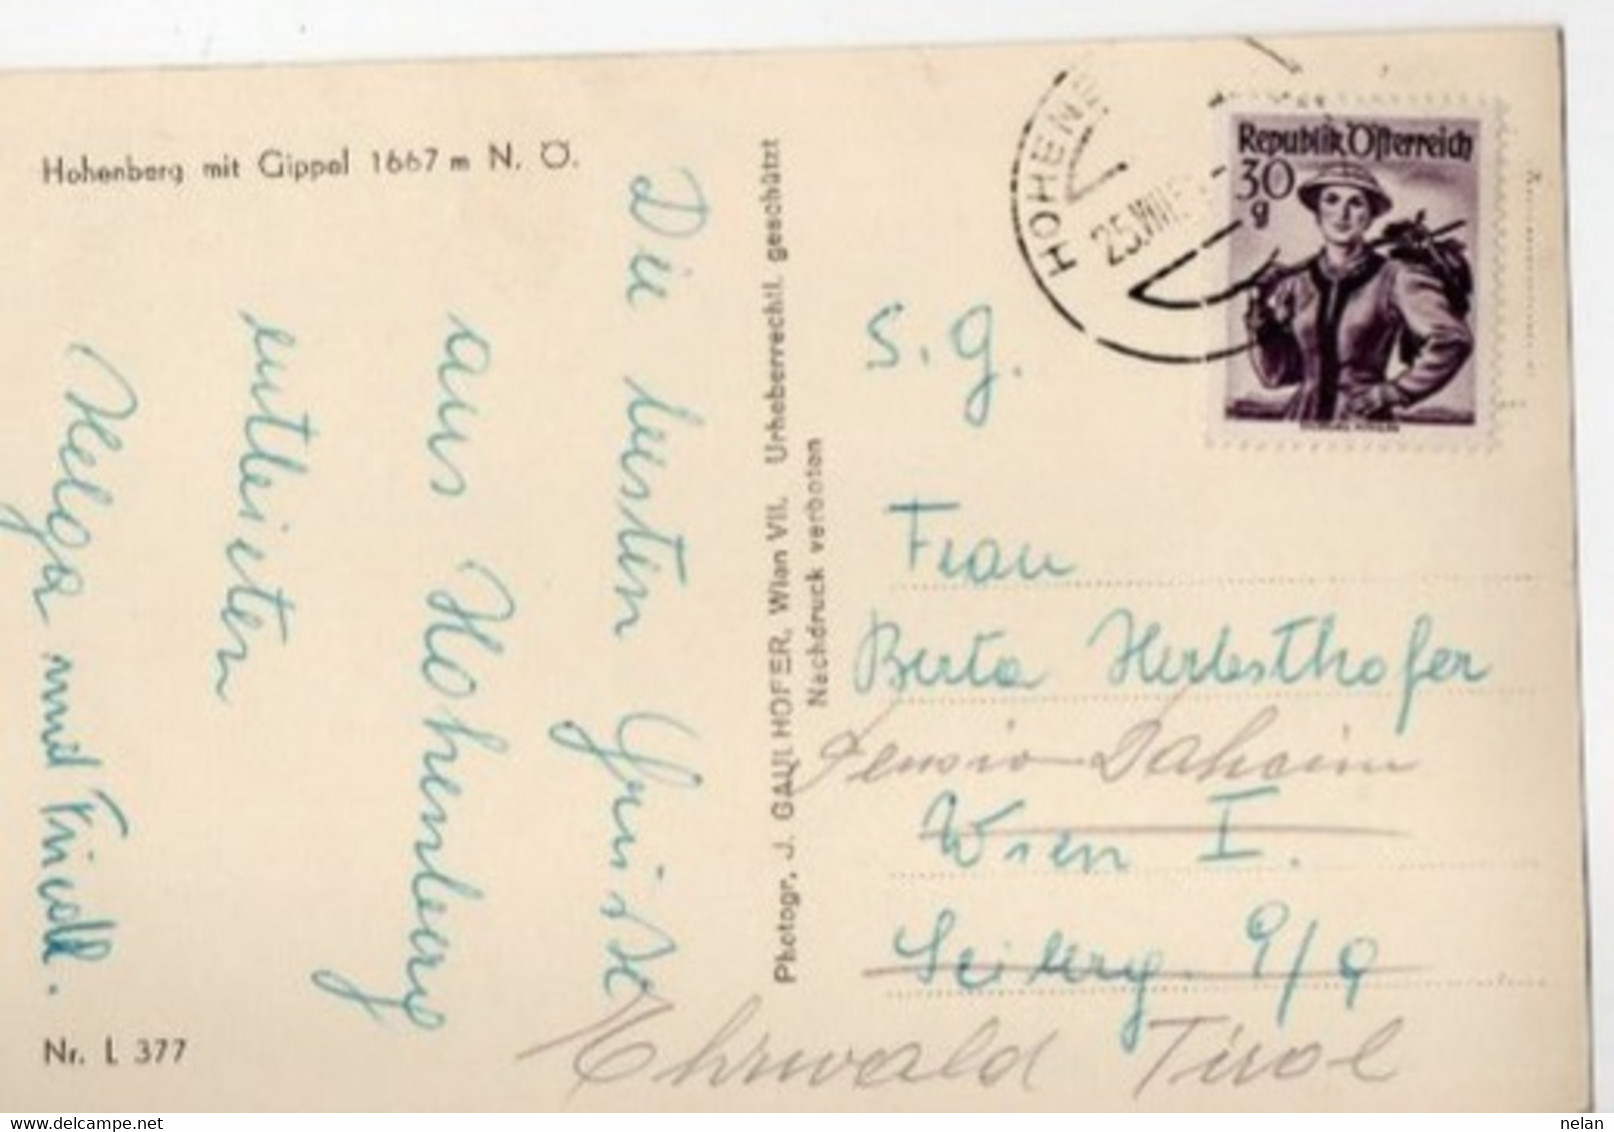 Hohenberg mit Gippel 1667 m N. Ö.
Die besten Grüße
aus Hohenberg
entbieten
Helga und Friedl.
Nr. L 377
Photogr. J. GAULHOFER, Wien VII. Urheberrechtl. geschützt
Nachdruck verboten
HOHENB
25.VIII.5
Republik Österreich
30
g
S. g.
Frau
Berta Herbsthofer
Pension Daheim
Wien I.
Seilerg. 9/9
Ehrwald Tirol
nelan